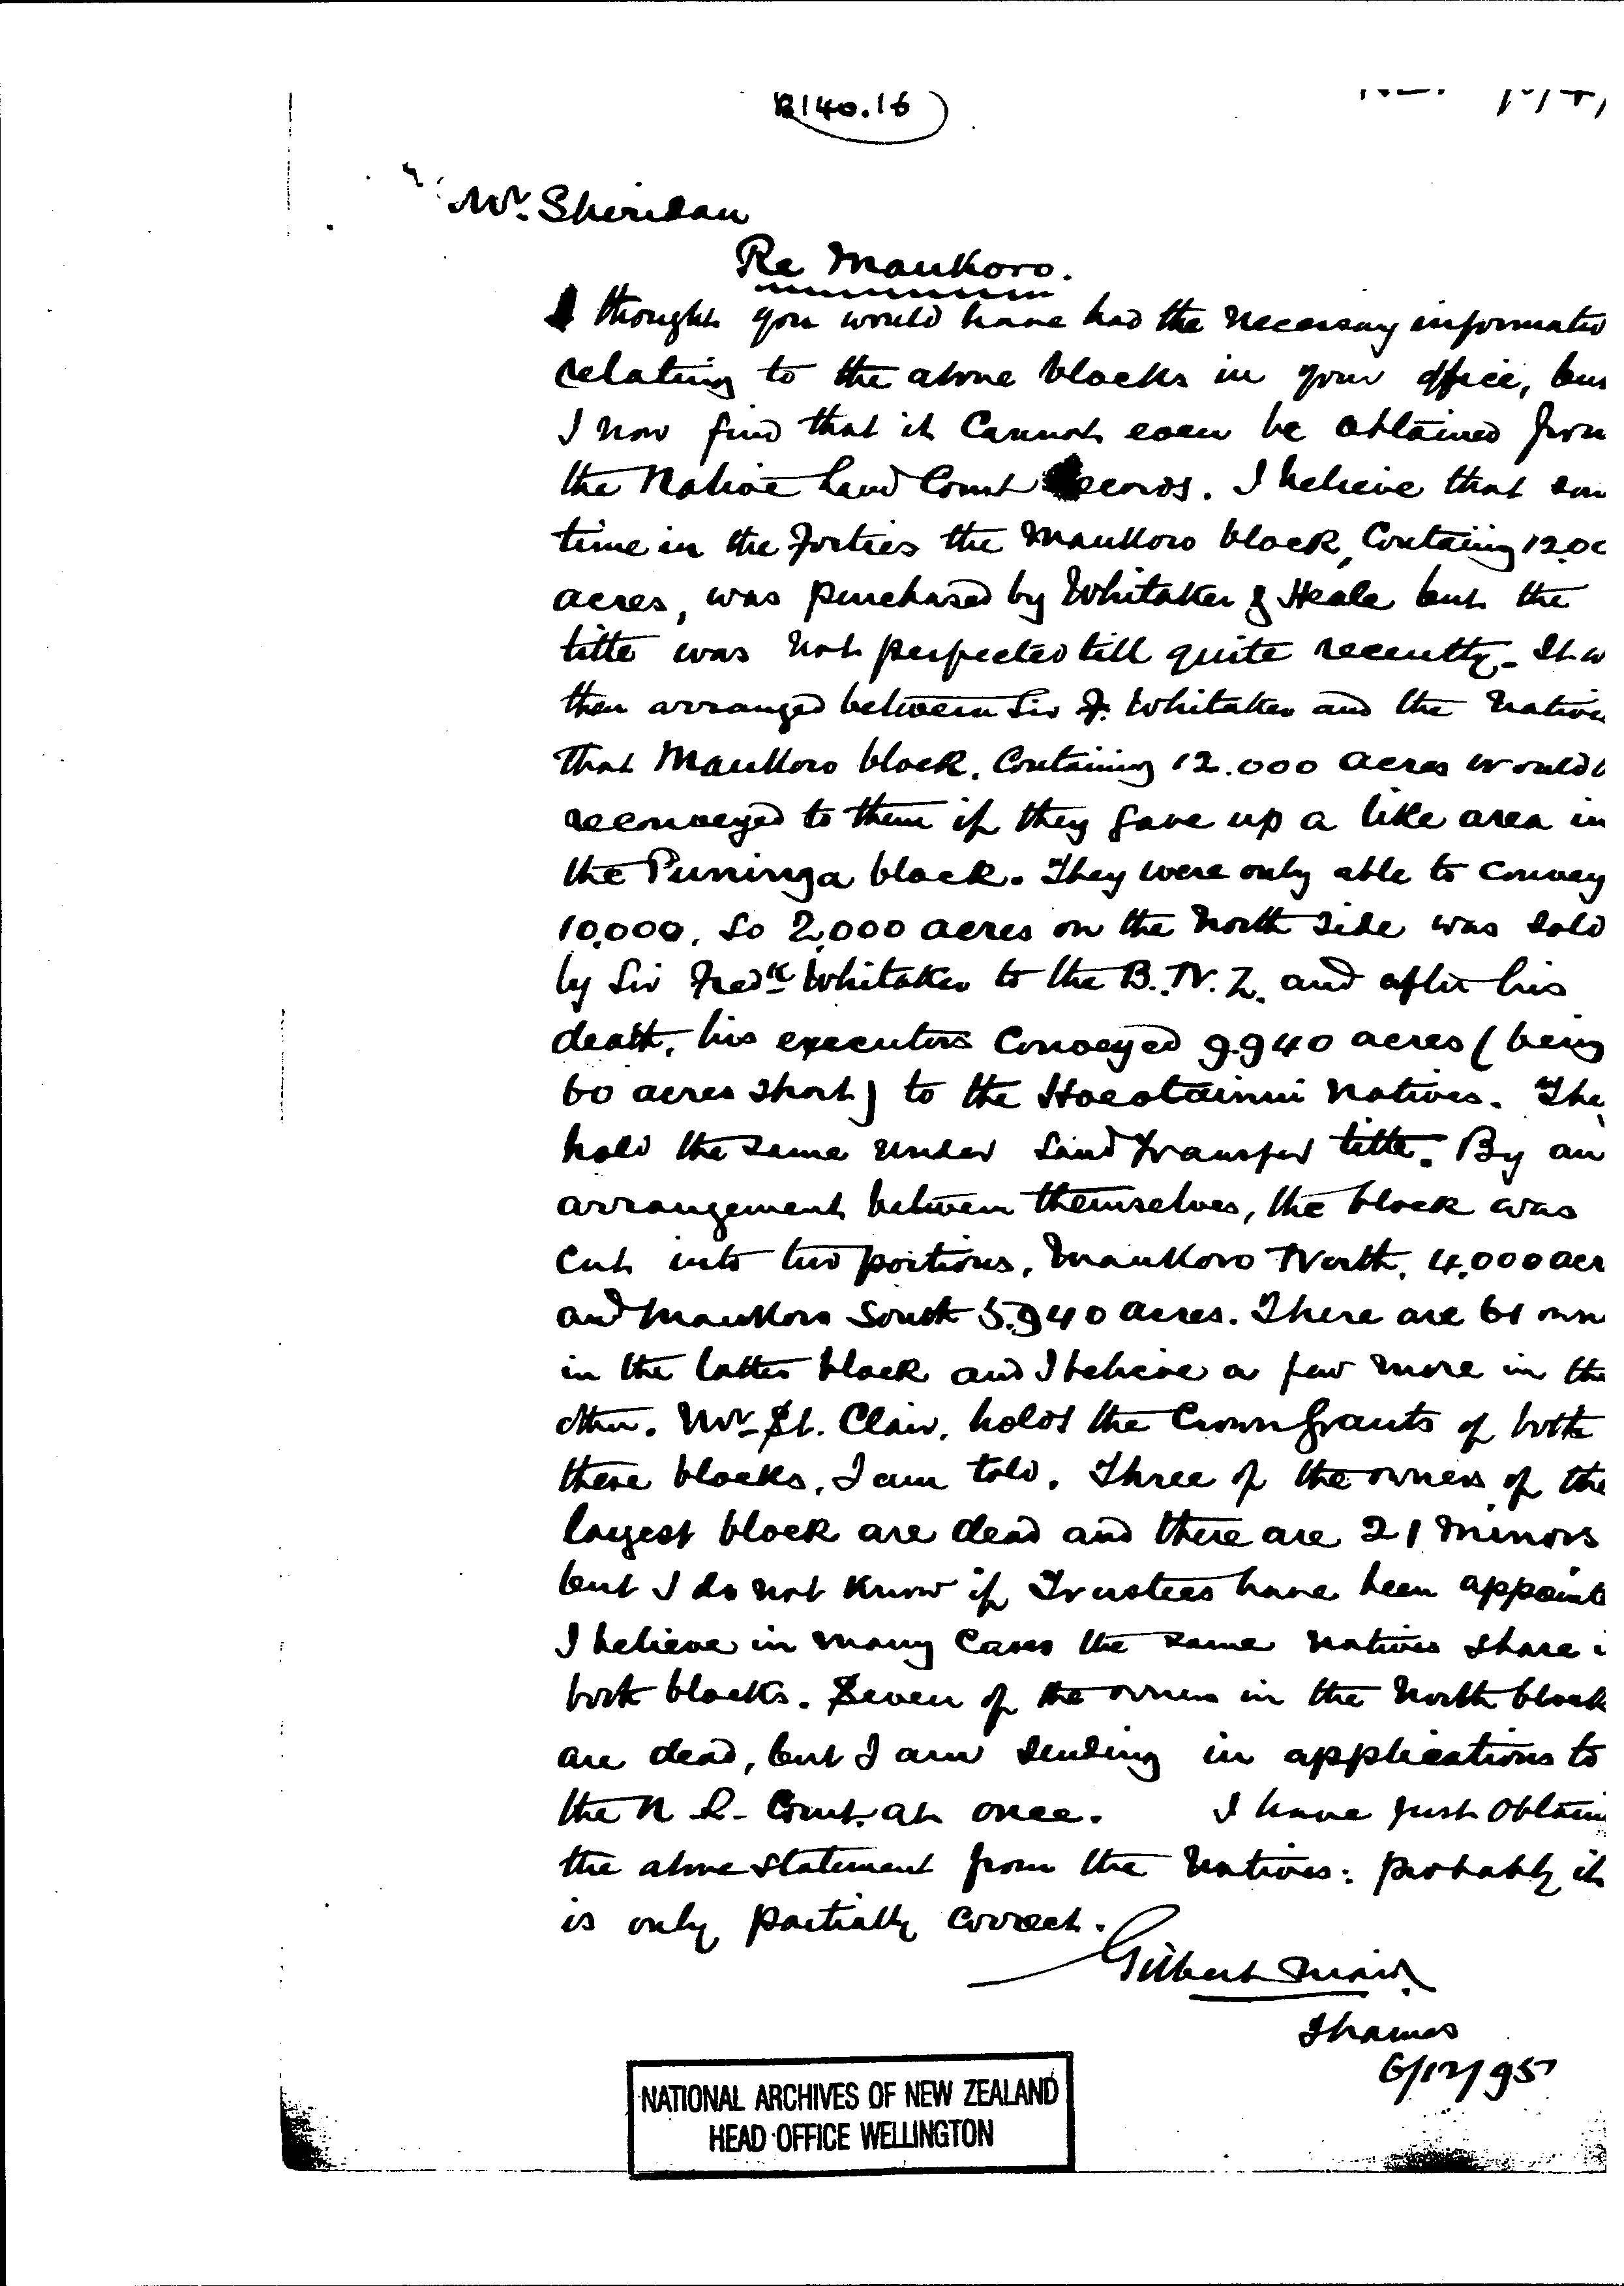 B140.16
Mr. Sheridan
Re Maukoro.
I thought you would have had the necessary informatio
relating to the above blocks in your office, but
I now find that it cannot even be obtained from
the Native Land Court Records. I believe that som
time in the Forties the Maukoro block, Containing 12.00
acres, was purchased by Whitaker & Heale but the
title was not perfected till quite recently. It w
then arranged between Sir F. Whitaker and the Native
that Maukoro block, Containing 12.000 acres would b
reconveyed to them if they gave up a like area in
the Puninga block. They were only able to convey
10,000, so 2,000 acres on the North Side was sold
by Sir Fredk Whitaker to the B.N.Z. and after his
death, his executors conveyed 9.940 acres (being
60 acres short) to the Hoeotainui Natives. The
hold the same under Land Transfer title. By an
arrangement between themselves, the block was
cut into two portions, Maukoro North, 4,000 acr
and Maukoro South 5.940 acres. There are 61 own
in the latter block and I believe a few more in the
other. Mr. St. Clair, holds the Crown Grants of both
these blocks, I am told. Three of the owners of the
largest block are dead and there are 21 minors
but I do not know if Trustees have been appoint
I believe in many cases the same natives share i
both blocks. Seven of the owners in the North block
are dead, but I am sending in applications to
the N. L. Court at once. I have just obtain
the above statement from the Natives: probably it
is only partially correct.
Gilbert Mair
Thames
6/12/95
NATIONAL ARCHIVES OF NEW ZEALAND
HEAD OFFICE WELLINGTON